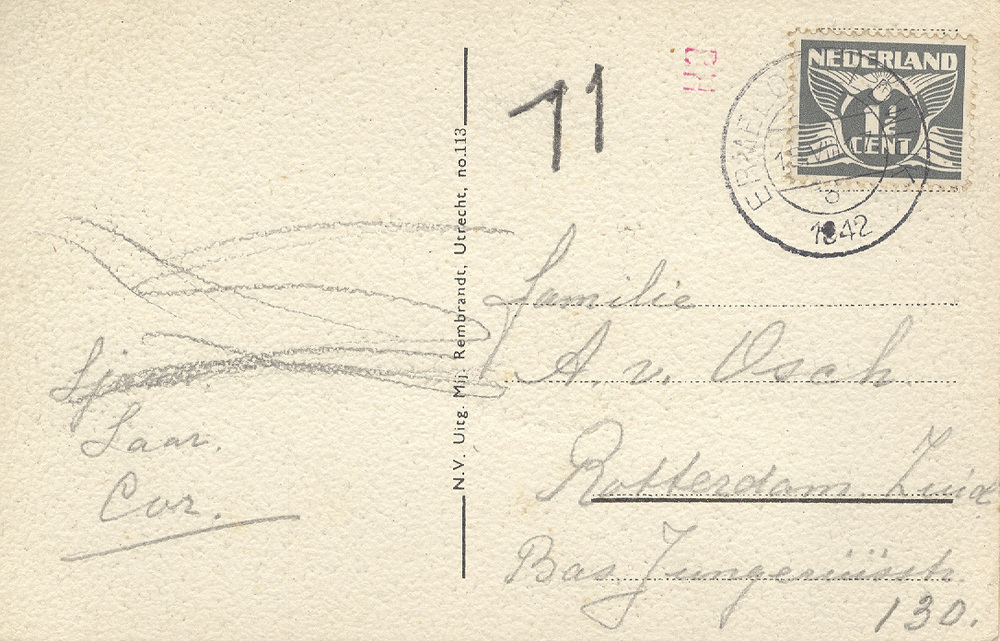 NEDERLAND
1½
CENT
ERMELO
1942
11
N.V. Uitg. Mij. Rembrandt, Utrecht, no.113
Familie
A. v. Osch.
Rotterdam. Zuid
Bas
130.
Laar.
Cor.